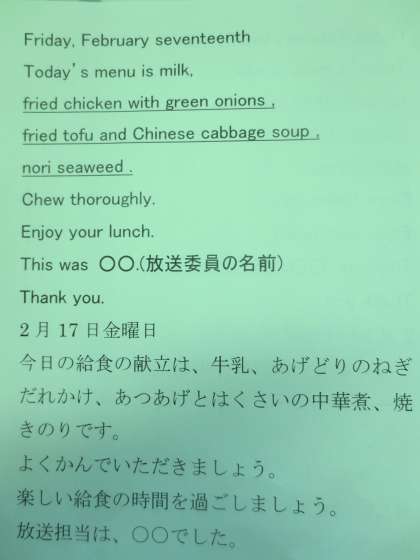 Friday, February seventeenth
Today's menu is milk,
fried chicken with green onions ,
fried tofu and Chinese cabbage soup ,
nori seaweed .
Chew thoroughly.
Enjoy your lunch.
This was 〇〇.(放送委員の名前)
Thank you.
2月17日金曜日
今日の給食の献立は、牛乳、あげどりのねぎ
だれかけ、あつあげとはくさいの中華煮、焼
きのりです。
よくかんでいただきましょう。
楽しい給食の時間を過ごしましょう。
放送担当は、〇〇でした。